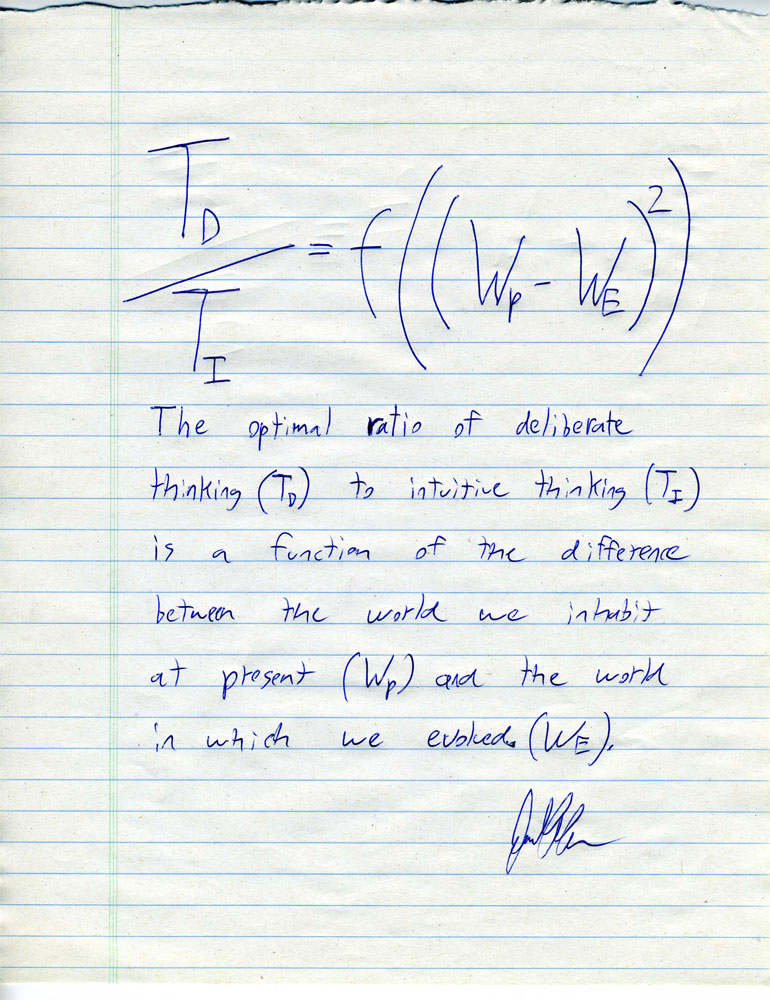 T_D / T_I = f((W_P - W_E)²)
The optimal ratio of deliberate
thinking (T_D) to intuitive thinking (T_I)
is a function of the difference
between the world we inhabit
at present (W_P) and the world
in which we evolved (W_E).